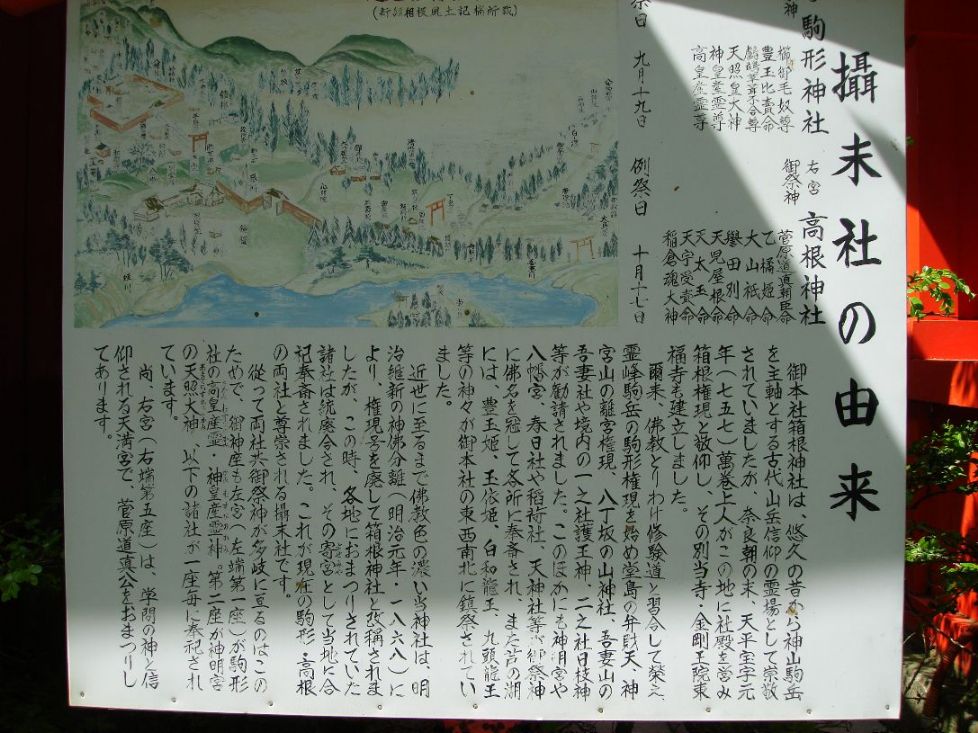 攝末社の由来
駒形神社
櫛御毛奴尊
豊玉比賣命
天照皇大神
神皇産霊尊
高皇産霊尊
右宮 高根神社
御祭神
菅原道真朝臣命
乙橘姫命
大山祇命
譽田別命
天児屋根命
天太玉命
天宇受賣命
稲倉魂大神
祭日 九月十九日 例祭日 十月十七日
(新編相模風土記稿所載)
御本社箱根神社は、悠久の昔から神山駒岳
を主軸とする古代山岳信仰の霊場として崇敬
されていましたが、奈良朝の末、天平宝字元
年(七五七)萬巻上人がこの地に社殿を営み
箱根権現と敬仰し、その別当寺・金剛王院東
福寺も建立しました。
爾来、佛教とりわけ修験道と習合して榮え、
霊峰駒岳の駒形権現を始め堂島の弁財天、神
宮山の離宮権現、八丁坂の山神社、吾妻山の
吾妻社や境内の一之社護王神、二之社日枝神
等が勧請されました。このほかにも神明宮や
八幡宮、春日社や稲荷社、天神社等が御祭神
に佛名を冠して各所に奉斎され、また芦の湖
には、豊玉姫、玉依姫、白和龍王、九頭龍王
等の神々が御本社の東西南北に鎮祭されてい
ました。
近世に至るまで佛教色の濃い当神社は、明
治維新の神佛分離(明治元年・一八六八)に
より、権現号を廃して箱根神社と改稱されま
したが、この時、各地におまつりされていた
諸社は統廃合され、その寄宮として当地に合
祀奉斎されました。これが現在の駒形・高根
の両社と尊崇される攝末社です。
従って両社共御祭神が多岐に亘るのはこの
ためで、御神座も左宮(左端第一座)が駒形
社の高皇産霊・神皇産霊神。第二座が神明宮
の天照大神、以下の諸社が一座毎に奉祀され
ています。
尚、右宮(右端第五座)は、学問の神と信
仰される天満宮で、菅原道真公をおまつりし
てあります。